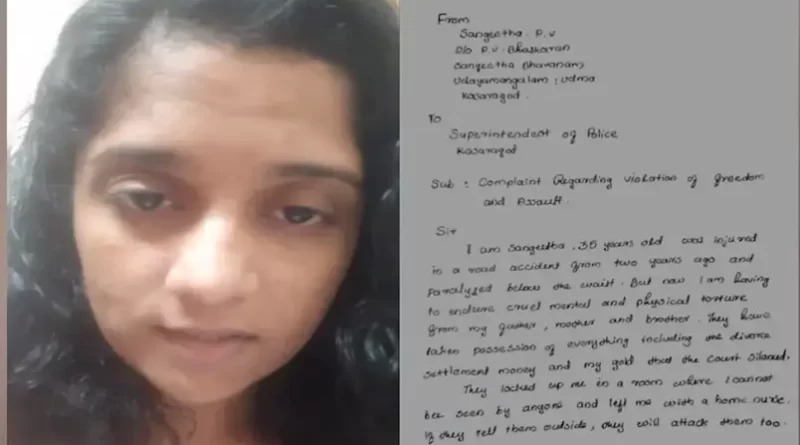 From
Sangeetha . P. v
D/o P. v. Bhaskaran
Sangeetha (Bhavanam)
Udayamangalam ; Udma
Kasaragod .
To
Superintendent of Police
Kasaragod
Sub : Complaint Regarding violation of freedom
and Assault.
Sir
I am Sangeetha . 35 years old was injured
in a road accident from two years ago and
Paralyzed below the waist. But now I am having
to endure cruel mental and physical torture
from my father, mother and brother. They have
taken possession of everything including the divorce
settlement money and my gold that the Court
They locked up me in a room where I cannot
be seen by anyone and left me with a home nurse.
If they tell them outside, they will attack them too.